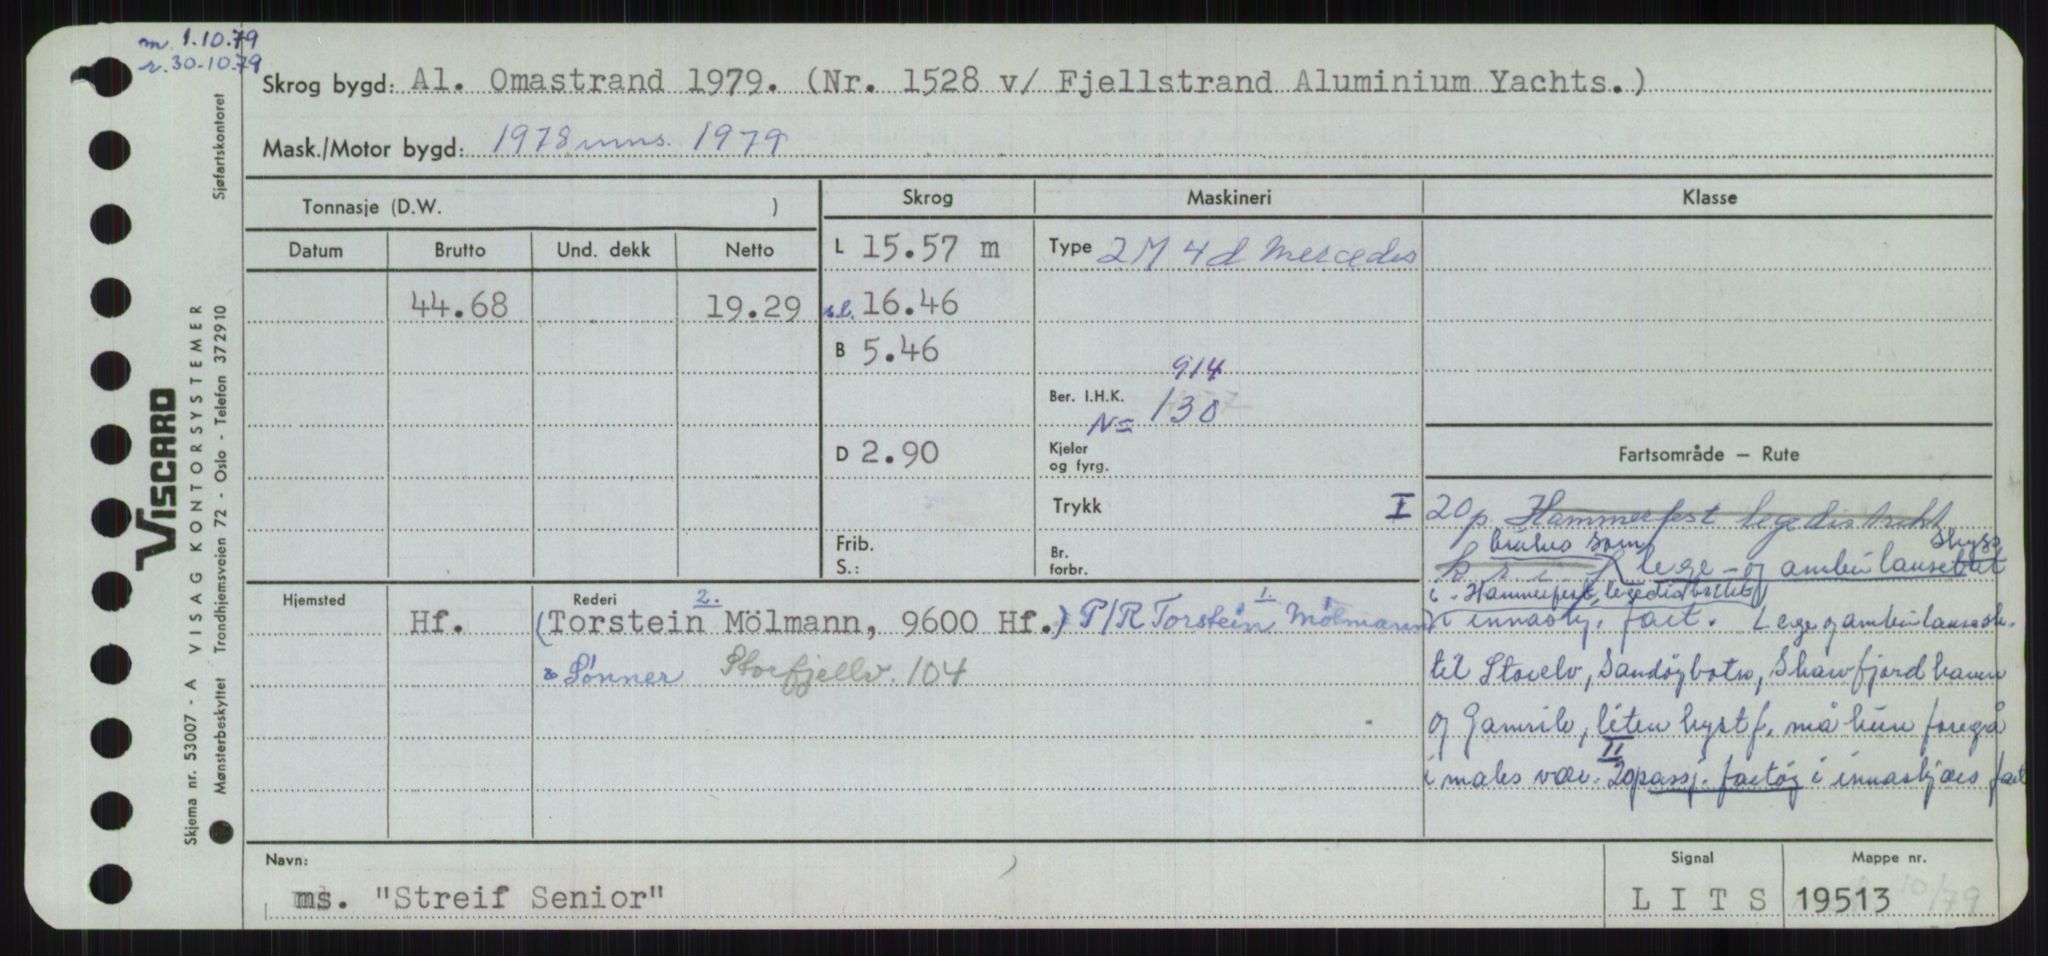 m. 1.10.79
r. 30-10.79
Skrog bygd: Al. Omastrand 1979. (Nr. 1528 v/ Fjellstrand Aluminium Yachts.)
Mask./Motor bygd: 1978 mms. 1979
Tonnasje (D.W. )
Skrog
Maskineri
Klasse
Datum Brutto Und. dekk Netto
L 15.57 m
Type 2 M 4 d Mercedes
44.68 19.29
s.l. 16.46
B 5.46
914
Ber. I.H.K.
N= 130
D 2.90
Kjeler
og fyrg.
Fartsområde — Rute
Trykk
Frib.
S.:
Br.
forbr.
I 20 p. Hammerfest legedistrikt
brukes som skyss
lege - og ambulansebåt
i Hammerfest legedistrikt
i innaskj. fart. Lege og ambulansesk.
til Storelv, Sandøybotn,
og Gamvik, liten kystf. må kun foregå
i
II
20 passj. fartøy i innaskjærs fart
Hjemsted
Rederi
Hf.
2.
(Torstein Mölmann, 9600 Hf.)
1.
P/R Torstein Mölmann
& Sønner Storfjellv. 104
Navn:
ms. "Streif Senior"
Signal
L I T S
Mappe nr.
19513
10/79
VISCARD
Skjema nr. 53007 - A VISAG KONTORSYSTEMER
Mønsterbeskyttet Trondhjemsveien 72 - Oslo - Telefon 372910
Sjøfartskontoret